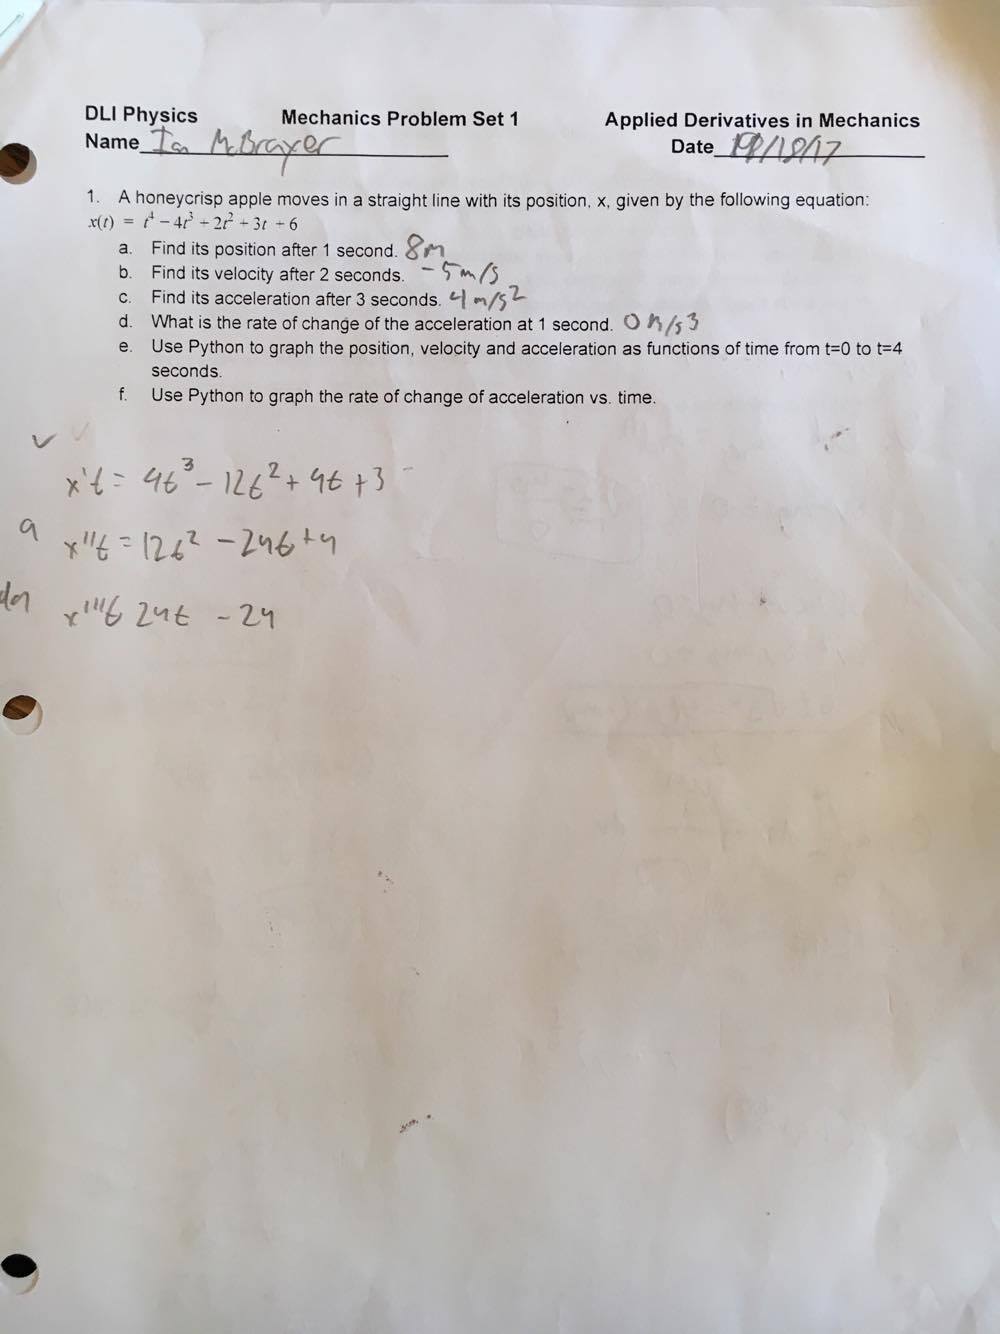 DLI Physics Mechanics Problem Set 1 Applied Derivatives in Mechanics
Name Ian McBrayer Date /18/17
1. A honeycrisp apple moves in a straight line with its position, x, given by the following equation:
x(t) = t⁴ – 4t³ + 2t² + 3t + 6
a. Find its position after 1 second. 8m
b. Find its velocity after 2 seconds. -5m/s
c. Find its acceleration after 3 seconds. 4 m/s²
d. What is the rate of change of the acceleration at 1 second. 0 m/s³
e. Use Python to graph the position, velocity and acceleration as functions of time from t=0 to t=4
seconds.
f. Use Python to graph the rate of change of acceleration vs. time.
v
x't = 4t³ - 12t² + 4t + 3
a x''t = 12t² - 24t + 4
x'''t 24t - 24